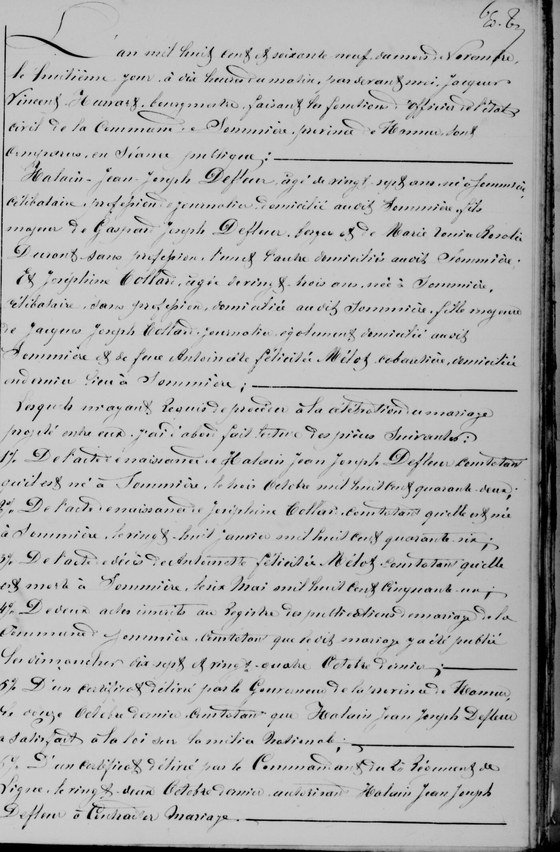 L'an mil huit cent et soixante neuf du mois de Novembre,
le huitième jour à dix heures du matin, par devant moi, Jacques
Vincent bourgmestre, faisant les fonctions d'officier de l'état
civil de la Commune de Sommière, province de Namur, sont
comparus, en Séance publique;
Halain Jean Joseph Defleur, âgé de vingt sept ans, né à Sommière,
célibataire, profession de journalier, domicilié audit Sommière, fils
majeur de Gaspard Joseph Defleur, berger et de Marie Rosalie
sans profession, l'un et l'autre domiciliés audit Sommière.
Et Joséphine Collard, âgée de vingt-trois ans, née à Sommière,
célibataire, sans profession, domiciliée audit Sommière, fille majeure
de Jacques Joseph Collard, journalier, également domicilié audit
Sommière et de feue Antoinette félicité Mélot, cabaretière, domiciliée
en dernier lieu à Sommière;
Lesquels m'ayant requis de procéder à la célébration du mariage
projeté entre eux, j'ai d'abord fait lecture des pièces suivantes:
1° De l'acte de naissance de Halain Jean Joseph Defleur constatant
qu'il est né à Sommière, le trois Octobre mil huit cent quarante-deux;
2° De l'acte de naissance de Joséphine Collard, constatant qu'elle est née
à Sommière, le vingt-huit janvier mil huit cent quarante-six;
3° De l'acte de décès de Antoinette félicité Mélot, constatant qu'elle
est morte à Sommière, le six Mai mil huit cent cinquante-un;
4° De deux actes inscrits au Registre des publications de mariage de la
Commune de Sommière, constatant que ledit mariage y a été publié
les dimanches dix sept et vingt-quatre Octobre dernier;
5° D'un certificat délivré par le Gouverneur de la province de Namur,
le onze Octobre dernier, constatant que Halain Jean Joseph Defleur
a satisfait à la loi sur la milice Nationale;
6° D'un certificat délivré par le Commandant du 2e Régiment de
Ligne, le vingt-deux Octobre dernier, autorisant Halain Jean Joseph
Defleur à Contracter Mariage.